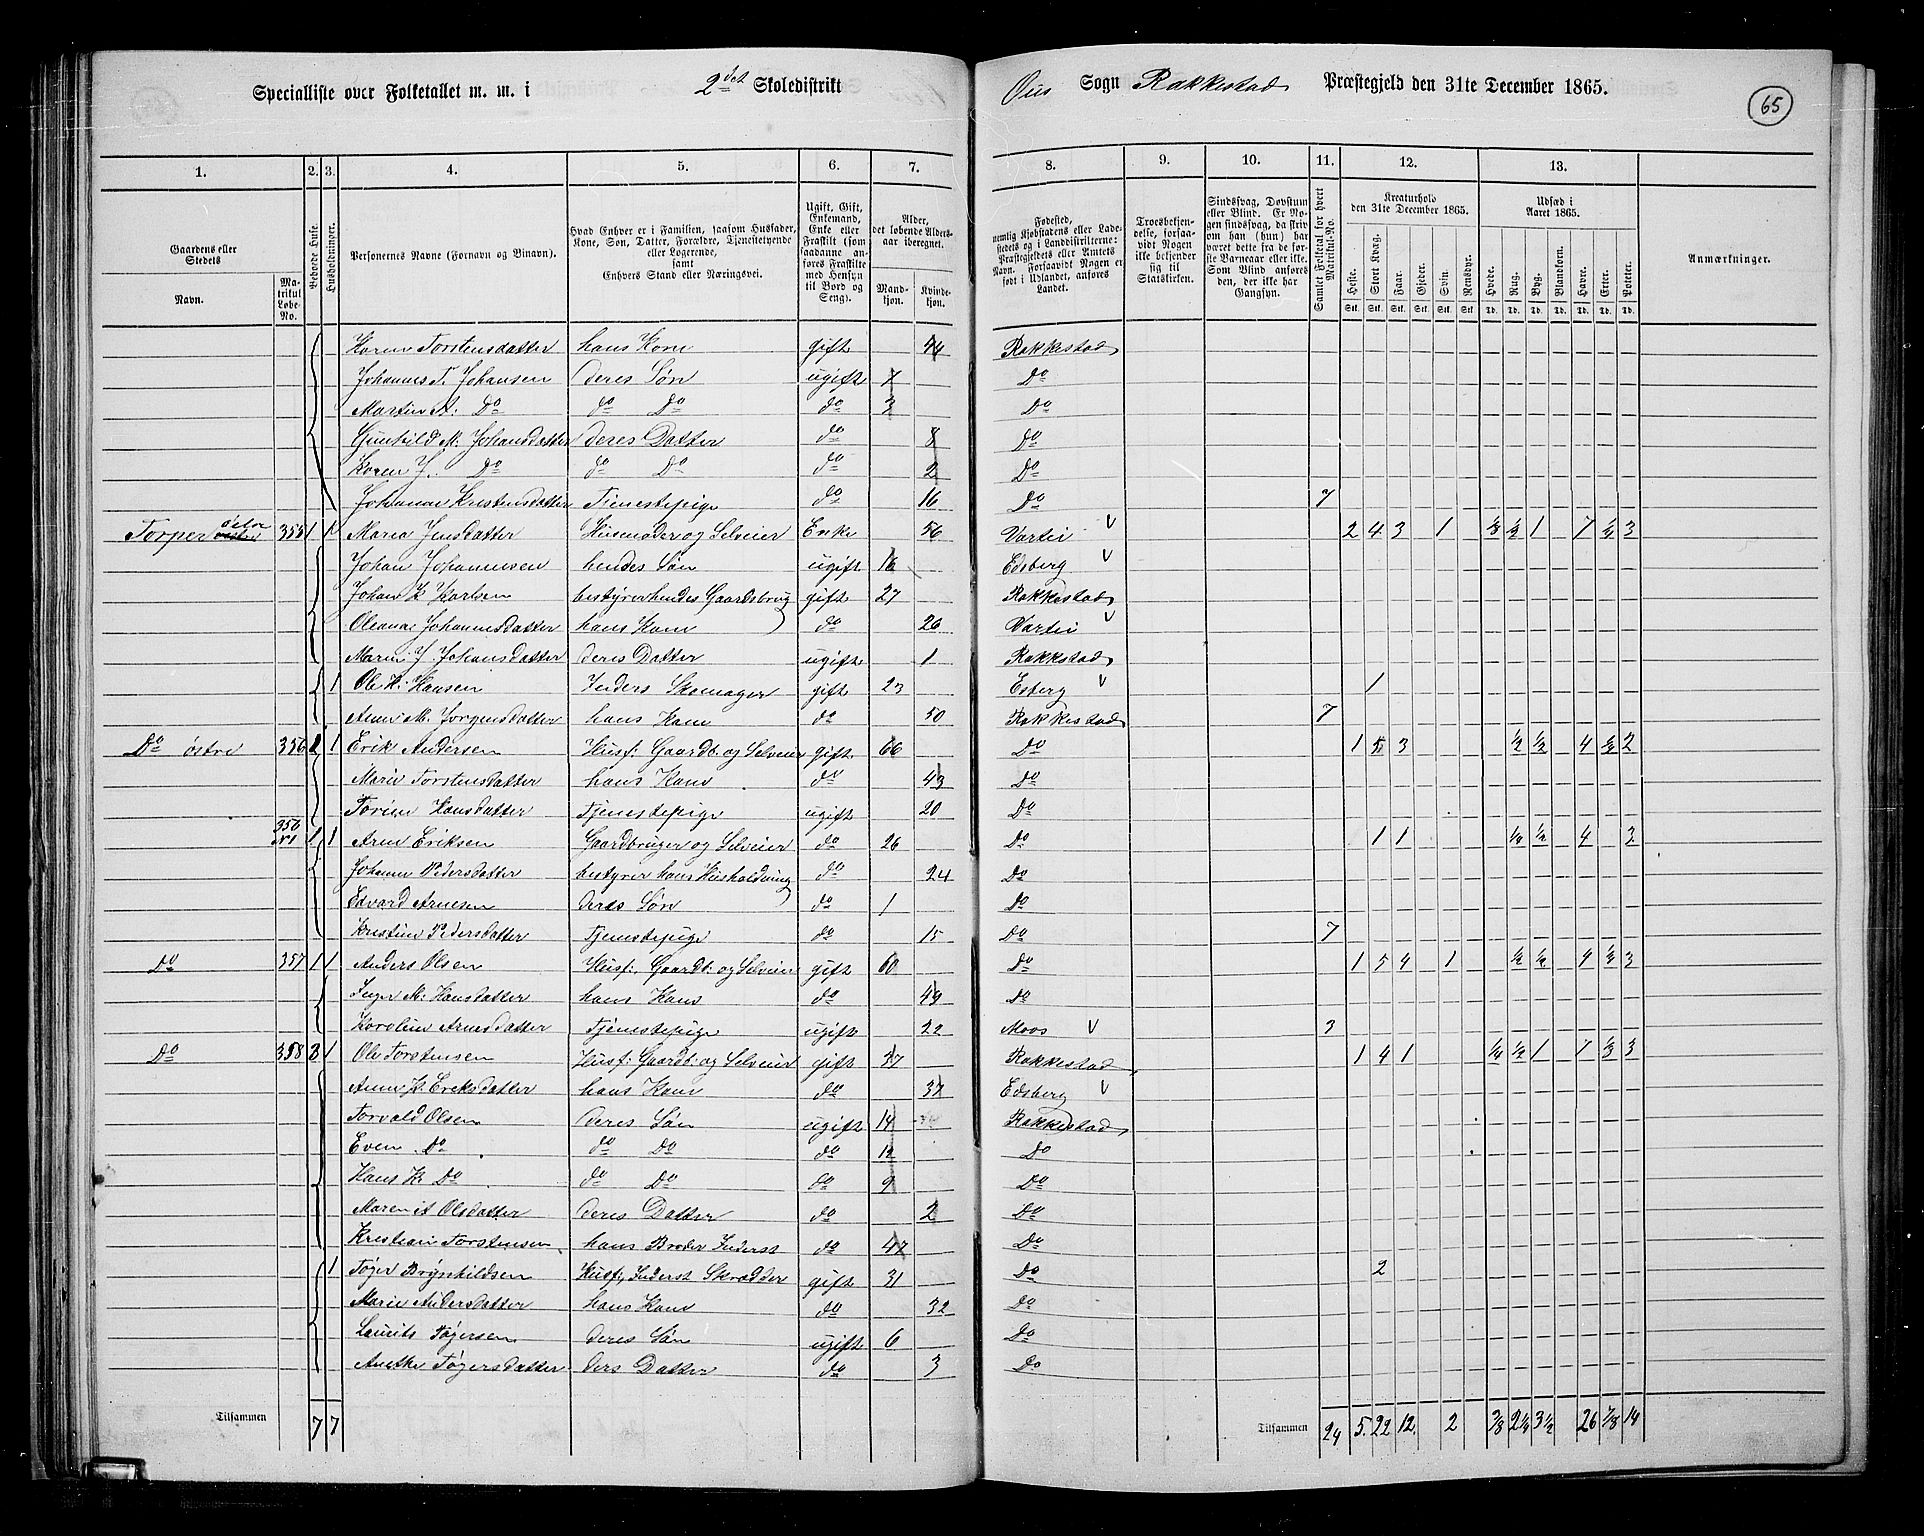 Specialliste over Folketallet m. m. i 2det Skoledistrikt Øus Sogn Rakkestad Præstegjeld den 31te December 1865.
65
1. 2. 3. 4. 5. 6. 7. 8. 9. 10. 11. 12. 13.
Gaardens eller Stedets
Navn. Matrikul Løbe-No.
Beboede Huse.
Husholdninger.
Personernes Navne (Fornavn og Binavn).
Hvad Enhver er i Familien, saasom Husfader, Kone, Søn, Datter, Forældre, Tjenestetyende eller Logerende, samt Enhvers Stand eller Næringsvei.
Ugift, Gift, Enkemand, Enke eller Fraskilt (som saadanne anføres Fraskilte med Hensyn til Bord og Seng).
Alder, det løbende Aldersaar iberegnet.
Mandkjøn. Kvindekjøn.
Fødested, nemlig Kjøbstadens eller Ladestedets og i Landdistrikterne: Præstegjeldets eller Amtets Navn. Forsaavidt Nogen er født i Udlandet, anføres Landet.
Troesbekjendelse, forsaavidt Nogen ikke bekjender sig til Statskirken.
Sindssvag, Døvstum eller Blind. Er Nogen sindssvag, da skrives om han (hun) har været dette fra de første Barneaar eller ikke. Som Blind anføres den, der ikke har Gangsyn.
Samlet Folketal for hvert Matrikul-No.
Kreaturhold den 31te December 1865.
Heste. Stort Kvæg. Faar. Gjeder. Svin. Rensdyr.
Udsæd i Aaret 1865.
Hvede. Rug. Byg. Blandkorn. Havre. Erter. Poteter.
Anmærkninger.
Karen Torstensdatter hans Kone gift 44 Rakkestad
Johannes T. Johansen deres Søn ugift 7 Do
Martin A. Do do Do do 3 Do
Gunhild M. Johansdatter deres Datter do 8 Do
Karen J. Do do Do do 2 Do
Johanne Kristensdatter Tjenestepige do 16 Do 7
Torper østre 355 1 1 Maria Jensdatter Husmoder og Selveier Enke 56 Varteie 2 4 3 1 1/8 1/2 1 7 1/2 3
Johan Johannesen hendes Søn ugift 16 Edsberg
Johan K. Karlsen bestyrer hendes Gaardsbrug gift 27 Rakkestad
Oleana Johannesdatter hans Kone do 26 Varteie
Maren J. Johansdatter deres Datter ugift 1 Rakkestad
1 Ole H. Hansen Inders Skomager gift 23 Esberg 1
Anne M. Jørgensdatter hans Kone do 50 Rakkestad 7
Do østre 356 2 1 Erik Andersen Husf: Gaardb. og Selveier gift 66 Do 1 5 3 1/2 1/2 4 1/2 2
Marie Torstensdatter hans Kone do 43 Do
Torine Hansdatter Tjenestepige ugift 20 Do
356 1 1 Arne Eriksen Gaardbruger og Selveier do 26 Do 1 1 1/4 1/2 4 2
Johanne Pedersdatter bestyrer hans Husholdning do 24 Do
Edvard Arnesen deres Søn do 1 Do
Kristine Pedersdatter Tjenestepige do 15 Do 7
Do 357 1 1 Anders Olsen Husf: Gaardb: og Selveier gift 60 Do 1 5 4 1 1/2 1/2 4 1/2 3
Inger M. Hansdatter hans Kone do 49 Do
Karoline Arnesdatter Tjenestepige ugift 22 Moss 3
Do 358 3 1 Ole Torstensen Husf: Gaardb: og Selveier gift 37 Rakkestad 1 4 1 1/4 1/2 1 7 1/3 3
Anne K. Eriksdatter hans Kone do 37 Edsberg
Torvald Olsen deres Søn ugift 14 Rakkestad
Even Do do Do do 12 Do
Hans K. Do do Do do 9 Do
Maren Olsdatter deres Datter do 2 Do
Kristian Torstensen hans Broder Inderst do 47 Do
1 Tøger Brynhildsen Husf; Inderst Skrædder gift 31 Do 2
Marie Andersdatter hans Kone do 32 Do
Laurits Tøgersen deres Søn ugift 6 Do
Anethe Tøgersdatter ders Datter do 3 Do
Tilsammen 7 7 Tilsammen 24 5. 22 12. 2 3/8 2 1/4 3 1/2 26 7/8 14